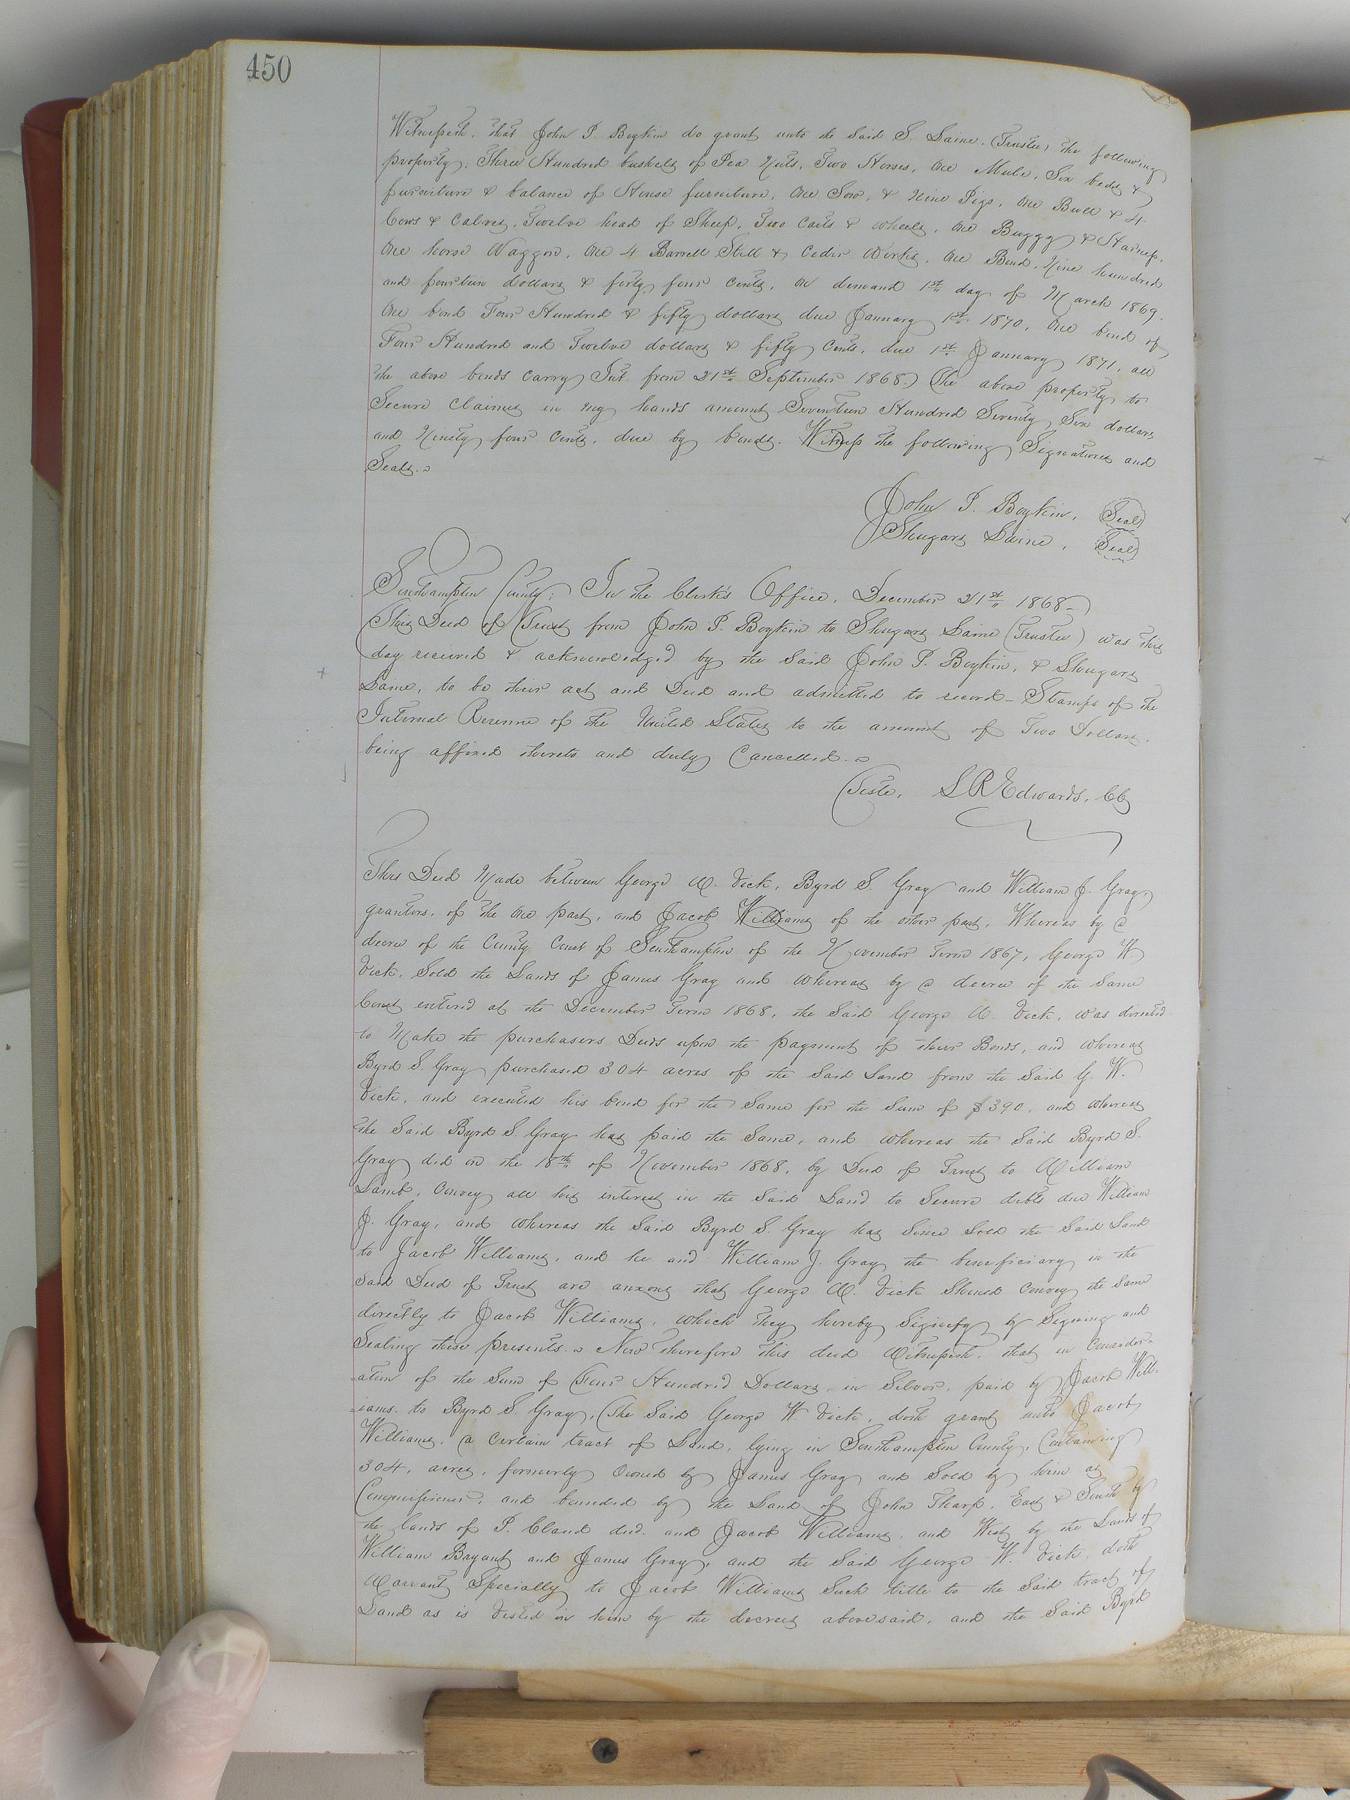 450
Witnesseth, that John P. Boykin do grant unto the said S. Laine (Trustee) the following
property, Three Hundred bushels of Pea Nuts, Two Horses, One Mule, Six beds &
furniture & balance of House furniture, One Sow, & Nine Pigs, One Bull & 4
Cows & Calves, Twelve head of Sheep, Two Carts & wheels, One Buggy & Harness,
One horse Waggon, One 4 Barrell Still & Cedar Works, One Bond, Nine hundred
and fourteen dollars & forty four cents, on demand 1st day of March 1869.
One bond Four Hundred & fifty dollars due January 1st 1870, One bond of
Four Hundred and Twelve dollars & fifty Cents, due 1st January 1871, all
the above bonds carry Int. from 21st September 1868.) The above property to
Secure claimes in my hands amount Seventeen Hundred Seventy Six dollars
and Ninety four Cents, due by bonds. Witness the following Signatures and
Seals.
John P. Boykin, (Seal)
Shugars Laine, (Seal)
Southampton County: In the Clerk's Office, December 21st 1868
This Deed of Trust from John P. Boykin to Shugars Laine (Trustee) was this
day received & acknowledged by the said John P. Boykin, & Shugars
Laine, to be their act and Deed and admitted to record - Stamps of the
Internal Revenue of the United States to the amount of Two Dollars
being affixed thereto and duly Cancelled.
Teste, L R Edwards, CC
This Deed Made between George W. Vick, Byrd S. Gray and William J. Gray
grantors, of the one part, and Jacob Williams of the other part, Whereas by a
decree of the County Court of Southampton of the November Term 1867, George W
Vick, Sold the Lands of James Gray and whereas by a decree of the Same
Court entered at the December Term 1868, the said George W. Vick, was directed
to Make the purchasers Deeds upon the payment of their Bonds, and whereas
Byrd S. Gray purchased 304 acres of the Said Land from the Said G. W.
Vick, and executed his bond for the Same for the Sum of $390, and whereas
the Said Byrd S. Gray has paid the Same, and whereas the Said Byrd S.
Gray did on the 18th of November 1868, by Deed of Trust to William
Lamb, Convey all his interest in the Said Land to Secure debts due William
J. Gray, and whereas the Said Byrd S. Gray has Since Sold the Said Land
to Jacob Williams, and he and William J. Gray the beneficiary in the
Said Deed of Trust are anxous that George W. Vick Should Convey the Same
directly to Jacob Williams, which they hereby Signify by Signing and
Sealing these presents. Now Therefore This deed Witnesseth, that in Consider-
-ation of the Sum of Four Hundred Dollars in Silver, paid by Jacob Will-
-iams to Byrd S. Gray, (The Said George W Vick, doth grant unto Jacob
Williams, a Certain tract of Land, lying in Southampton County, Containing
304, acres, formerly Owned by James Gray and Sold by him as
Commissioner, and bounded by the Land of John Tharp, East & South by
the lands of P. Claud decd. and Jacob Williams, and West by the Lands of
William Bryant and James Gray, and the Said George W. Vick, doth
Warrant Specially to Jacob Williams Such title to the Said tract of
Land as is Vested in him by the decrees abovesaid, and the Said Byrd